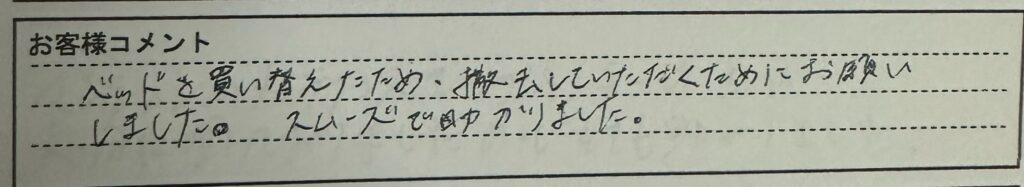 お客様コメント
ベッドを買い替えたため、撤去していただくためにお願い
しました。 スムーズで助かりました。